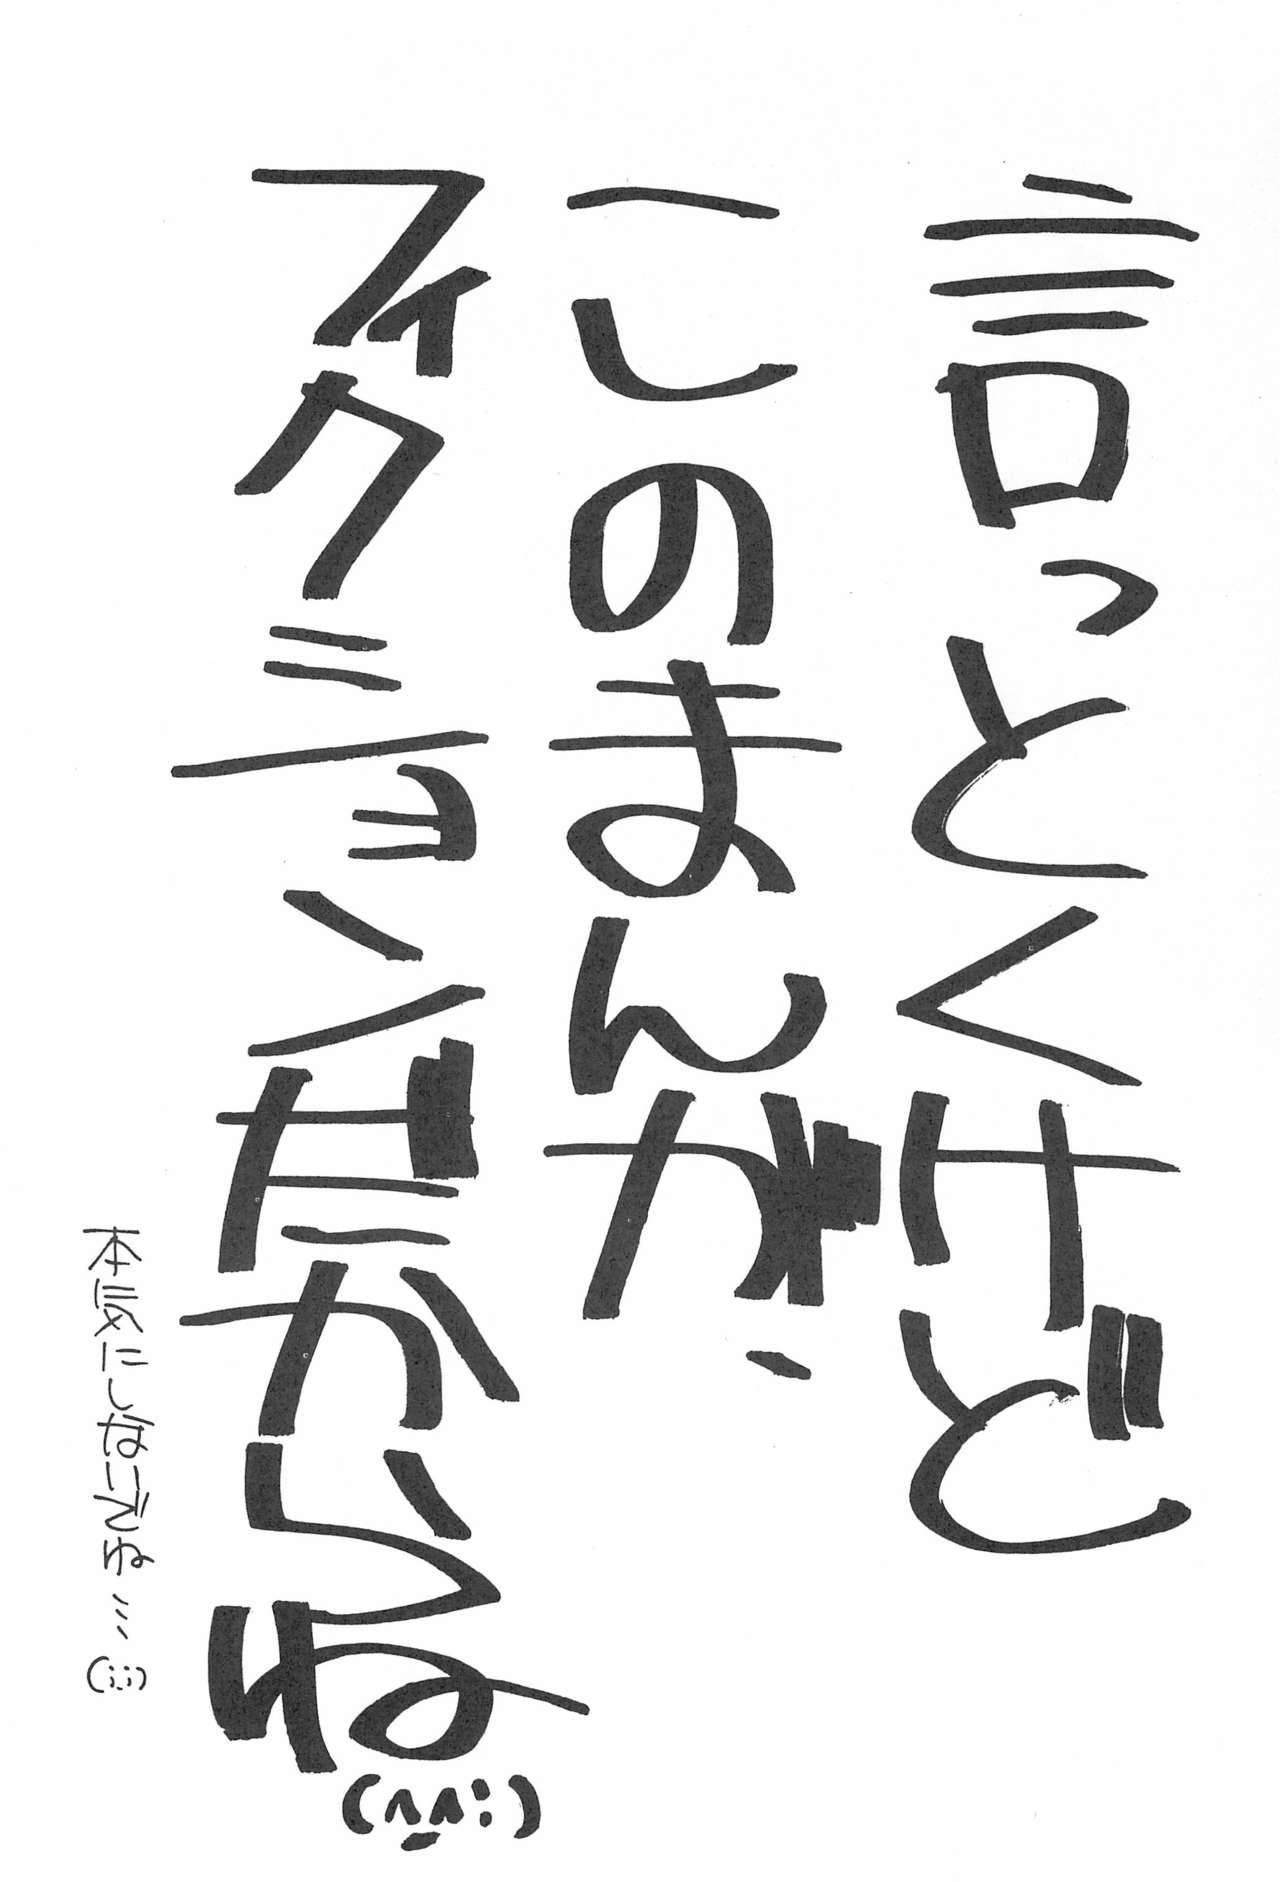 言っとくけど
このまんが、
フィクションだからね
(^_^;)
本気にしないでね…